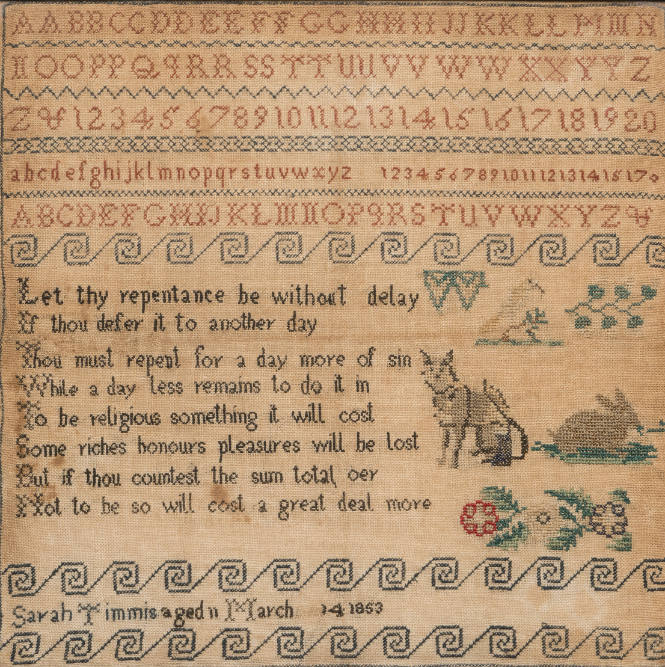 AABBCCDDEEFFGGHHIJJKKLLMMN
NOOPPQqRRSSTTUUVVWWXXYYZ
Z&1234567891011121314151617181920
abcdefghijklmnopqrstuvwxyz 1234567891011121314151617
ABCDEFGHIJKLMNOPqRSTUVWXYZ&
Let thy repentance be without delay
If thou defer it to another day
Thou must repent for a day more of sin
While a day less remains to do it in
To be religious something it will cost
Some riches honours pleasures will be lost
But if thou countest the sum total oer
Not to be so will cost a great deal more
Sarah Timmis aged 11 March 14 1853